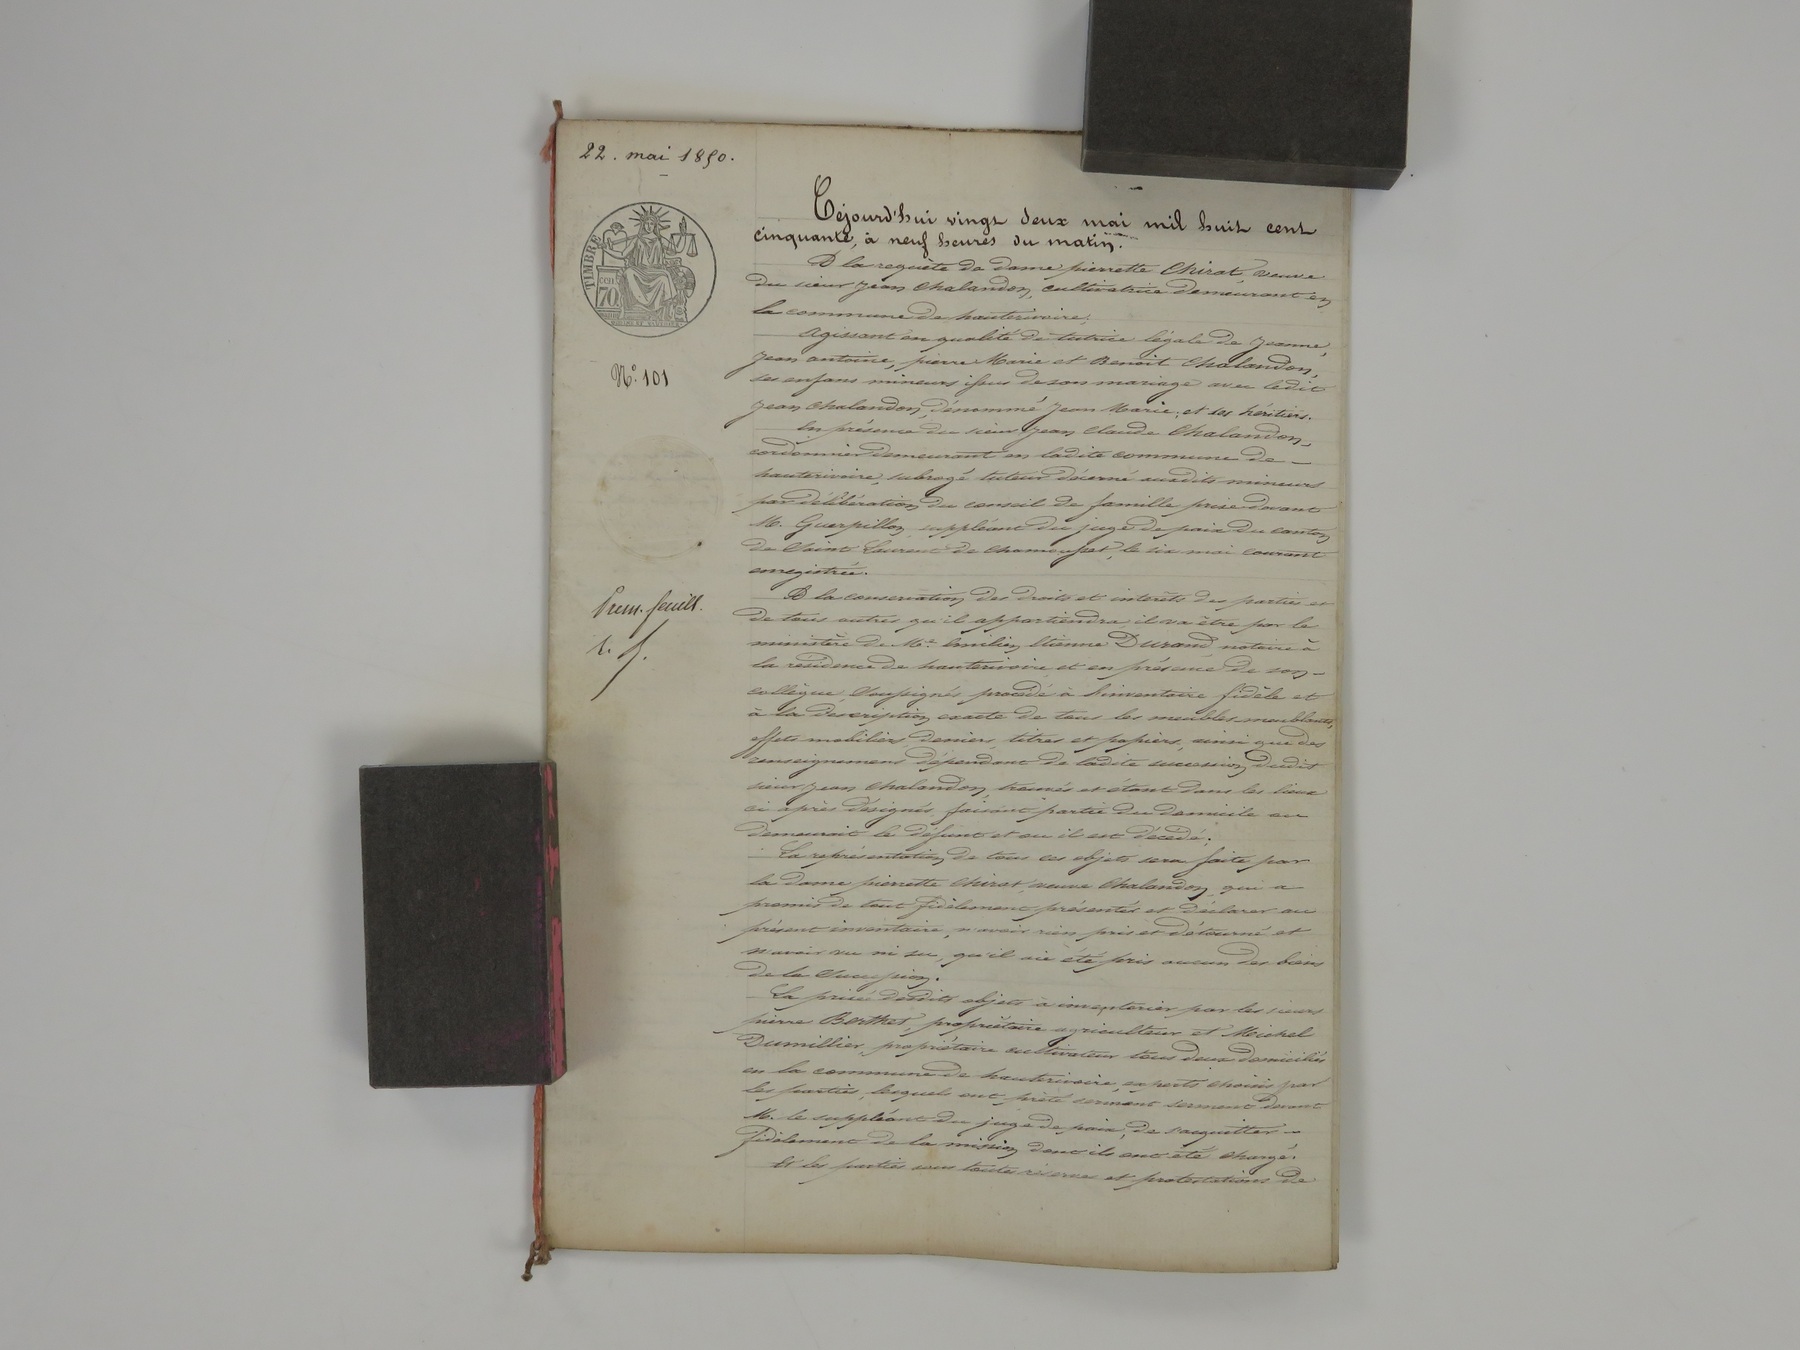 22. mai 1850.
TIMBRE
70
N.° 101
Prem. feuill.
Cejourd'hui vingt deux mai mil huit cent
cinquante, à neuf heures du matin.
A la requête de dame pierrette Chirat, veuve
du sieur jean Chalandon, cultivatrice demeurant en
la commune de hauterivoire,
Agissant en qualité de tutrice légale de jeanne,
jean antoine, pierre Marie et Benoit Chalandon,
ses enfans mineurs issus de son mariage avec ledit
jean Chalandon, dénommé jean Marie, et ses héritiers.
En présence du sieur jean Claude Chalandon,
cordonnier demeurant en ladite commune de –
hauterivoire, subrogé tuteur décerné auxdits mineurs
par délibération du conseil de famille prise devant
M. Guerpillon, suppléant du juge de paix du canton
de Saint Laurent de Chamousset, le six mai courant
enregistrée.
A la conservation des droits et intérêts des parties et
de tous autres qu'il appartiendra, il va être par le
ministère de M.e Emilien Etienne Durand, notaire à
la résidence de hauterivoire et en présence de son –
collègue Soussignés procédé à l'inventaire fidèle et
à la déscription exacte de tous les meubles meublants,
effets mobiliers, deniers, titres et papiers, ainsi que des
renseignemens dépendant de ladite succession dudit
sieur jean Chalandon, trouvés et étant dans les lieux
ci après désignés, faisant partie du domicile ou
demeurait le défunt et ou il est décédé;
La représentation de tous ces objets sera faite par
la dame pierrette Chirat, veuve Chalandon, qui a
promis de tout fidèlement présenter et déclarer au
présent inventaire, n'avoir rien pris et détourné et
n'avoir vu ni su, qu'il aie été pris aucun des biens
de la Succession.
La prisé desdits objets à inventorier par les sieurs
pierre Berthet, propriétaire agriculteur et Michel
Dumillier, propriétaire cultivateur tous deux domiciliés
en la commune de hauterivoire, experts choisis par
les parties, lesquels ont prêté serment serment devant
M. le suppléant du juge de paix, de s'acquitter –
fidèlement de la mission dont ils ont été chargé.
Et les parties sous toute réserves et protestations de